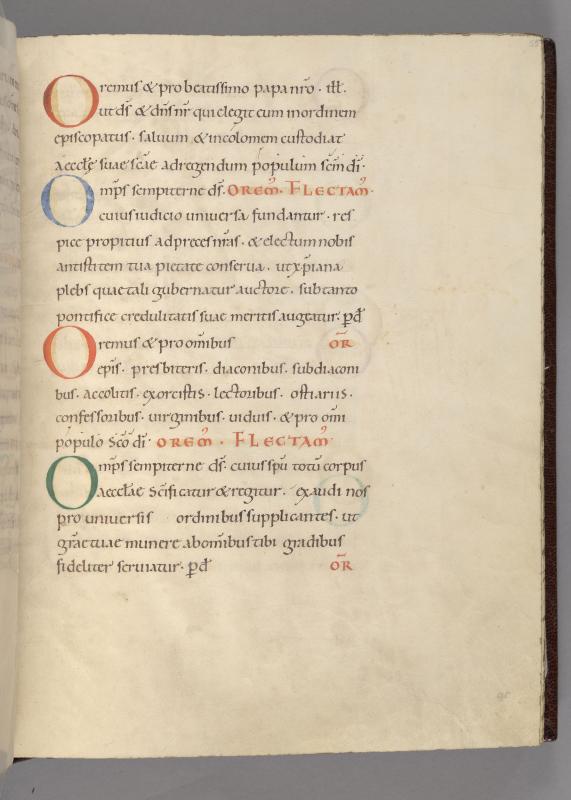 Oremus & pro beatissimo papa nr̄o · ill̄.
ut dс̄ & dn̄s nr̄ qui elegit eum in ordinem
episcopatus · saluum & incolomem custodiat
aeccłę suae sc̄ae ad regendum populum sc̄m dī·
Omp̄s sempiterne ds̄· OREM̄· FLECTAM̄·
cuius iudicio uniuersa fundantur · res
pice propitius ad preces nr̄as · & electum nobis
antistitem tua pietate conserua · ut xp̄iana
plebs quae tali gubernatur auctore · sub tanto
pontifice credulitatis suae meritis augeatur· p̄d
Oremus & pro omībus OR̄
ep̄is· presbiteris· diaconibus· subdiaconi
bus· accolitis· exorcistis· lectoribus· ostiariis·
confessoribus· uirginibus· uiduis· & pro om̄i
populo sc̄o dī· OREM̄· FLECTAM̄·
Omp̄s sempiterne ds̄· cuius sp̄u totū corpus
aeccłae sc̄ificatur & regitur· exaudi nos
pro uniuersis ordinibus supplicantes· ut
gr̄ae tuae munere ab om̄ibus tibi gradibus
fideliter seruiatur· p̄d OR̄